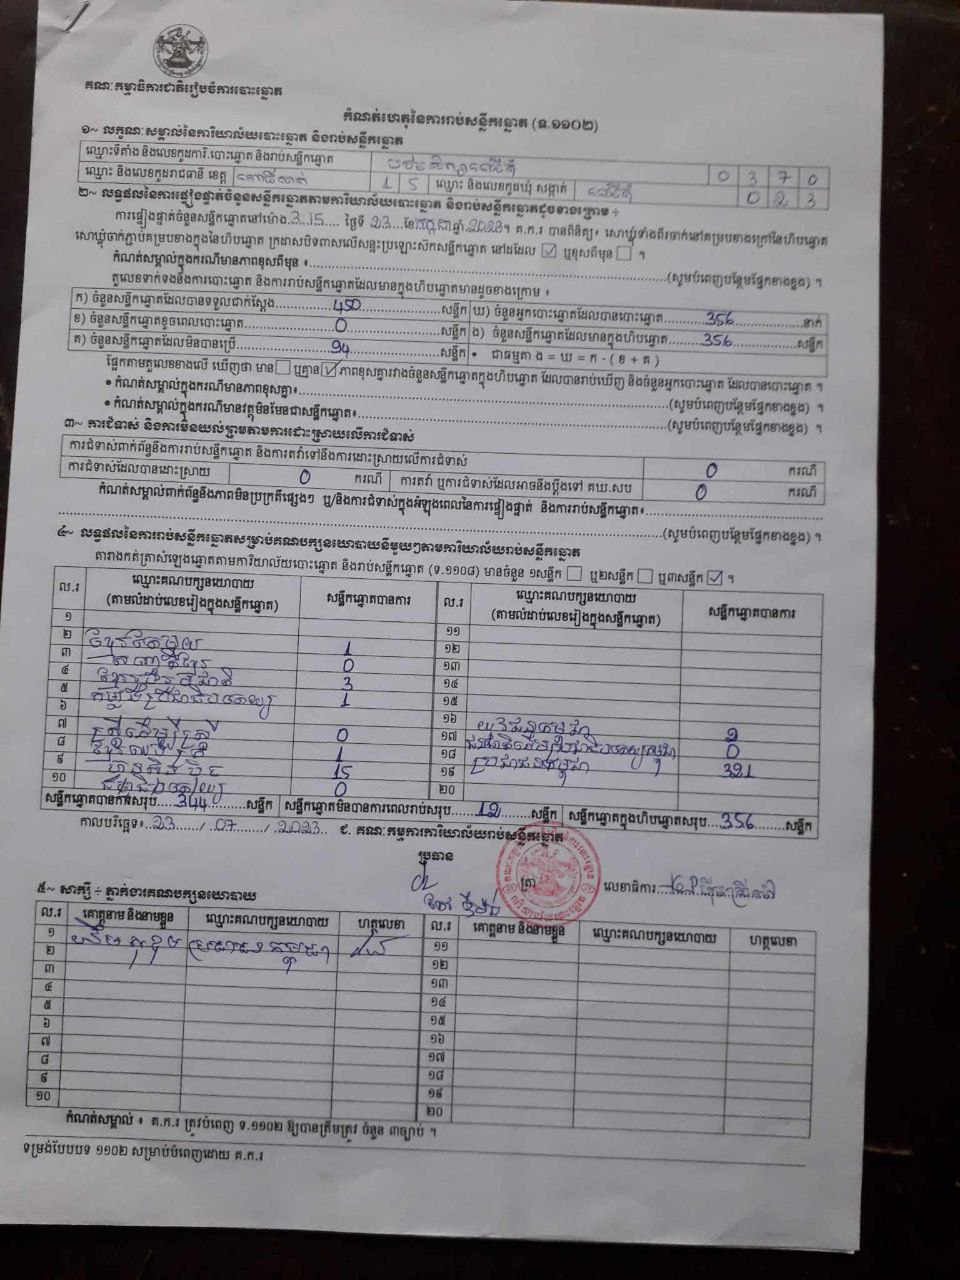 គណៈកម្មាធិការជាតិរៀបចំការបោះឆ្នោត
កំណត់ហេតុនៃការរាប់សន្លឹកឆ្នោត (ទ.១១០២)
១~ លក្ខណៈសម្គាល់នៃការិយាល័យបោះឆ្នោត និងរាប់សន្លឹកឆ្នោត
ឈ្មោះទីតាំង និងលេខកូដការិ.បោះឆ្នោត និងរាប់សន្លឹកឆ្នោត 0 3 7 0
ឈ្មោះ និងលេខកូដរាជធានី ខេត្ត ពោធិ៍សាត់ 1 5 ឈ្មោះ និងលេខកូដឃុំ សង្កាត់ 0 2 3
២~ លទ្ធផលនៃការផ្ទៀងផ្ទាត់ចំនួនសន្លឹកឆ្នោតតាមការិយាល័យបោះឆ្នោត និងរាប់សន្លឹកឆ្នោតដូចខាងក្រោម ÷
ការផ្ទៀងផ្ទាត់ចំនួនសន្លឹកឆ្នោតនៅម៉ោង.3:15.... ថ្ងៃទី 23 ...ខែកក្កដាឆ្នាំ.2023។ គ.ក.រ បានពិនិត្យ៖ សោឃ្មុំទាំងពីរចាក់នៅគម្របខាងក្រៅនៃហិបឆ្នោត
សោឃ្មុំចាក់ភ្ជាប់គម្របខាងក្នុងនៃហិបឆ្នោត ក្រដាសបិទពាសលើសន្ទះប្រឡោះស៊កសន្លឹកឆ្នោត នៅដដែល ☑ ឬខុសពីមុន ☐ ។
កំណត់សម្គាល់ក្នុងករណីមានភាពខុសពីមុន ៖......(សូមបំពេញបន្ថែមផ្នែកខាងខ្នង) ។
តួលេខទាក់ទងនឹងការបោះឆ្នោត និងការរាប់សន្លឹកឆ្នោតដែលមានក្នុងហិបឆ្នោតមានដូចខាងក្រោម ៖
ក) ចំនួនសន្លឹកឆ្នោតដែលបានទទួលជាក់ស្តែង......450......សន្លឹក ឃ) ចំនួនអ្នកបោះឆ្នោតដែលបានបោះឆ្នោត......356......នាក់
ខ) ចំនួនសន្លឹកឆ្នោតខូចពេលបោះឆ្នោត......0......សន្លឹក ង) ចំនួនសន្លឹកឆ្នោតដែលមានក្នុងហិបឆ្នោត......356......សន្លឹក
គ) ចំនួនសន្លឹកឆ្នោតដែលមិនបានប្រើ......94......សន្លឹក • ជាធម្មតា ង = ឃ = ក - ( ខ + គ )
ផ្អែកតាមតួលេខខាងលើ ឃើញថា មាន ☐ ឬគ្មាន ☑ ភាពខុសគ្នារវាងចំនួនសន្លឹកឆ្នោតក្នុងហិបឆ្នោត ដែលបានរាប់ឃើញ និងចំនួនអ្នកបោះឆ្នោត ដែលបានបោះឆ្នោត ។
• កំណត់សម្គាល់ក្នុងករណីមានភាពខុសគ្នា៖......(សូមបំពេញបន្ថែមផ្នែកខាងខ្នង) ។
• កំណត់សម្គាល់ក្នុងករណីមានវត្ថុមិនមែនជាសន្លឹកឆ្នោត៖......(សូមបំពេញបន្ថែមផ្នែកខាងខ្នង) ។
៣~ ការជំទាស់ និងការមិនយល់ព្រមតាមការដោះស្រាយលើការជំទាស់
ការជំទាស់ពាក់ព័ន្ធនឹងការរាប់សន្លឹកឆ្នោត និងការតវ៉ាទៅនឹងការដោះស្រាយលើការជំទាស់ 0 ករណី
ការជំទាស់ដែលបានដោះស្រាយ 0 ករណី ការតវ៉ា ឬការជំទាស់ដែលអាចនឹងប្តឹងទៅ គឃ.សប 0 ករណី
កំណត់សម្គាល់ពាក់ព័ន្ធនឹងភាពមិនប្រក្រតីផ្សេងៗ ឬ/និងការជំទាស់ក្នុងអំឡុងពេលនៃការផ្ទៀងផ្ទាត់ និងការរាប់សន្លឹកឆ្នោត៖......
......(សូមបំពេញបន្ថែមផ្នែកខាងខ្នង) ។
៤~ លទ្ធផលនៃការរាប់សន្លឹកឆ្នោតសម្រាប់គណបក្សនយោបាយនីមួយៗតាមការិយាល័យរាប់សន្លឹកឆ្នោត
តារាងកត់ត្រាសំឡេងឆ្នោតតាមការិយាល័យបោះឆ្នោត និងរាប់សន្លឹកឆ្នោត (ទ.១១០៨) មានចំនួន ១សន្លឹក ☐ ឬ២សន្លឹក ☐ ឬ៣សន្លឹក ☑ ។
ល.រ ឈ្មោះគណបក្សនយោបាយ (តាមលំដាប់លេខរៀងក្នុងសន្លឹកឆ្នោត) សន្លឹកឆ្នោតបានការ ល.រ ឈ្មោះគណបក្សនយោបាយ (តាមលំដាប់លេខរៀងក្នុងសន្លឹកឆ្នោត) សន្លឹកឆ្នោតបានការ
១ ១១
២ 1 ១២
៣ 0 ១៣
៤ 3 ១៤
៥ 1 ១៥
៦ ១៦ 2
៧ 0 ១៧ 0
៨ 1 ១៨ ប្រជាជនកម្ពុជា 321
៩ 15 ១៩
១០ 0 ២០
សន្លឹកឆ្នោតបានការសរុប....344......សន្លឹក សន្លឹកឆ្នោតមិនបានការពេលរាប់សរុប....12......សន្លឹក សន្លឹកឆ្នោតក្នុងហិបឆ្នោតសរុប...356......សន្លឹក
កាលបរិច្ឆេទ៖..23....../..07....../..2023.. ជ. គណៈកម្មការការិយាល័យរាប់សន្លឹកឆ្នោត
ប្រធាន
ត្រា លេខាធិការ
៥~ សាក្សី ÷ ភ្នាក់ងារគណបក្សនយោបាយ
ល.រ គោត្តនាម និងនាមខ្លួន ឈ្មោះគណបក្សនយោបាយ ហត្ថលេខា ល.រ គោត្តនាម និងនាមខ្លួន ឈ្មោះគណបក្សនយោបាយ ហត្ថលេខា
១ ប្រជាជនកម្ពុជា ១១
២ ១២
៣ ១៣
៤ ១៤
៥ ១៥
៦ ១៦
៧ ១៧
៨ ១៨
៩ ១៩
១០ ២០
កំណត់សម្គាល់ ៖ គ.ក.រ ត្រូវបំពេញ ទ.១១០២ ឱ្យបានត្រឹមត្រូវ ចំនួន ៣ច្បាប់ ។
ទម្រង់បែបបទ ១១០២ សម្រាប់បំពេញដោយ គ.ក.រ